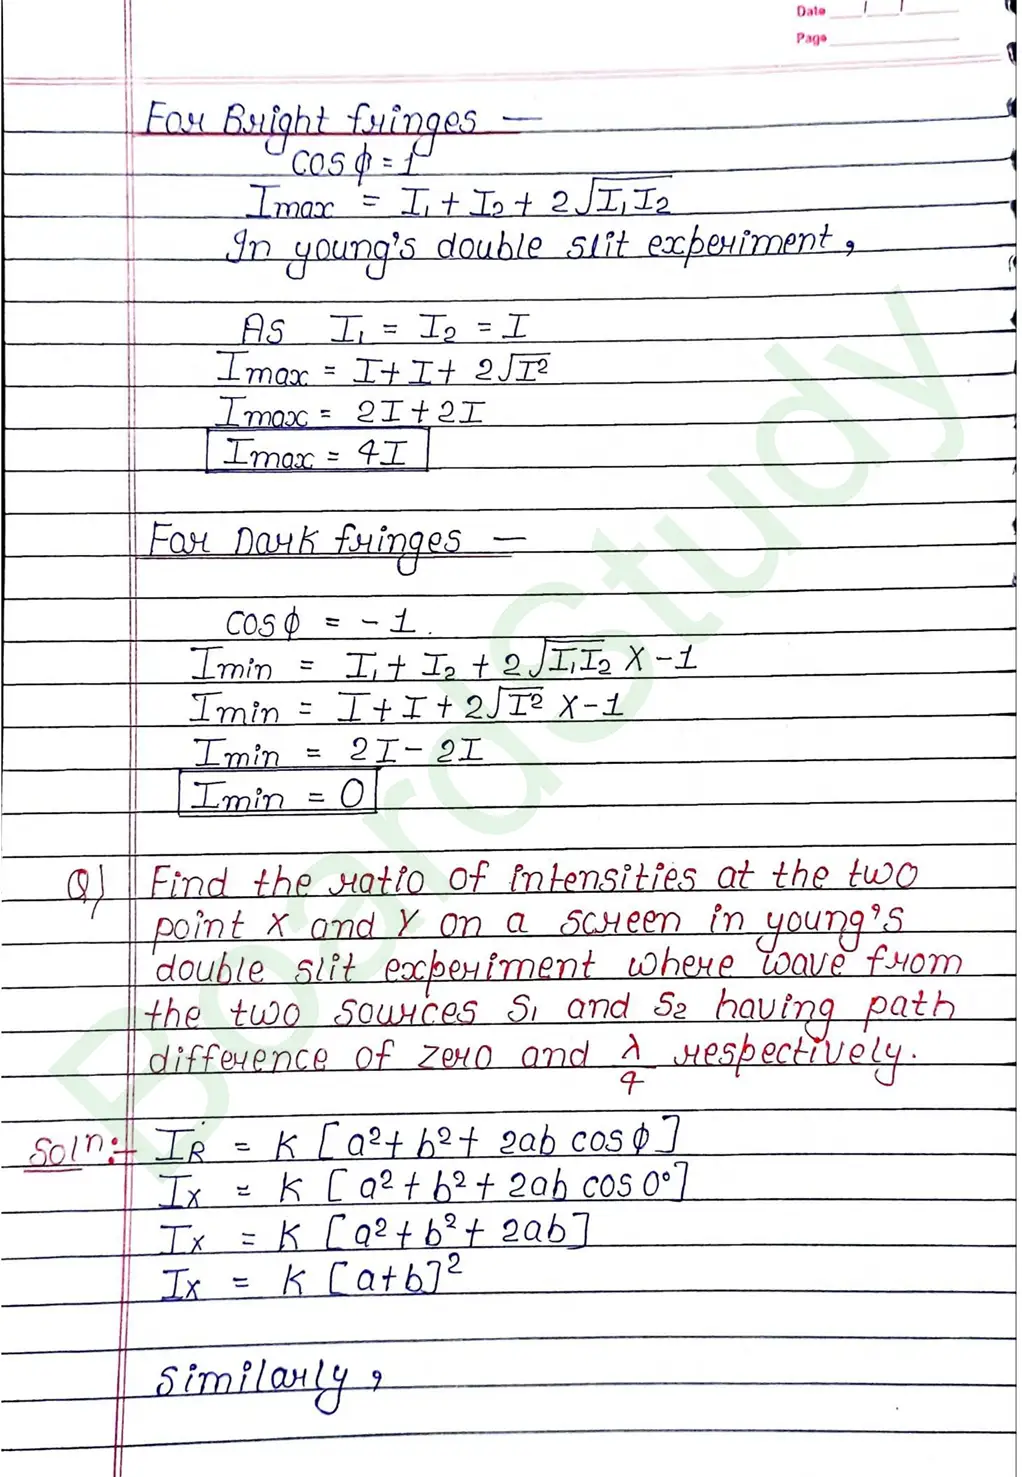 Date / /
Page
For Bright fringes —
cos ϕ = 1
Imax = I₁ + I₂ + 2√I₁I₂
In young's double slit experiment,
As I₁ = I₂ = I
Imax = I + I + 2√I²
Imax = 2I + 2I
Imax = 4I
For Dark fringes —
cos ϕ = - 1.
Imin = I₁ + I₂ + 2√I₁I₂ X - 1
Imin = I + I + 2√I² X - 1
Imin = 2I - 2I
Imin = 0
Q) Find the ratio of intensities at the two
point X and Y on a screen in young's
double slit experiment where wave from
the two sources S₁ and S₂ having path
difference of zero and λ/4 respectively.
Solⁿ:- IR = K [a² + b² + 2ab cos ϕ]
Ix = K [a² + b² + 2ab cos 0°]
Ix = K [a² + b² + 2ab]
Ix = K [a+b]²
Similarly,
BoardStudy